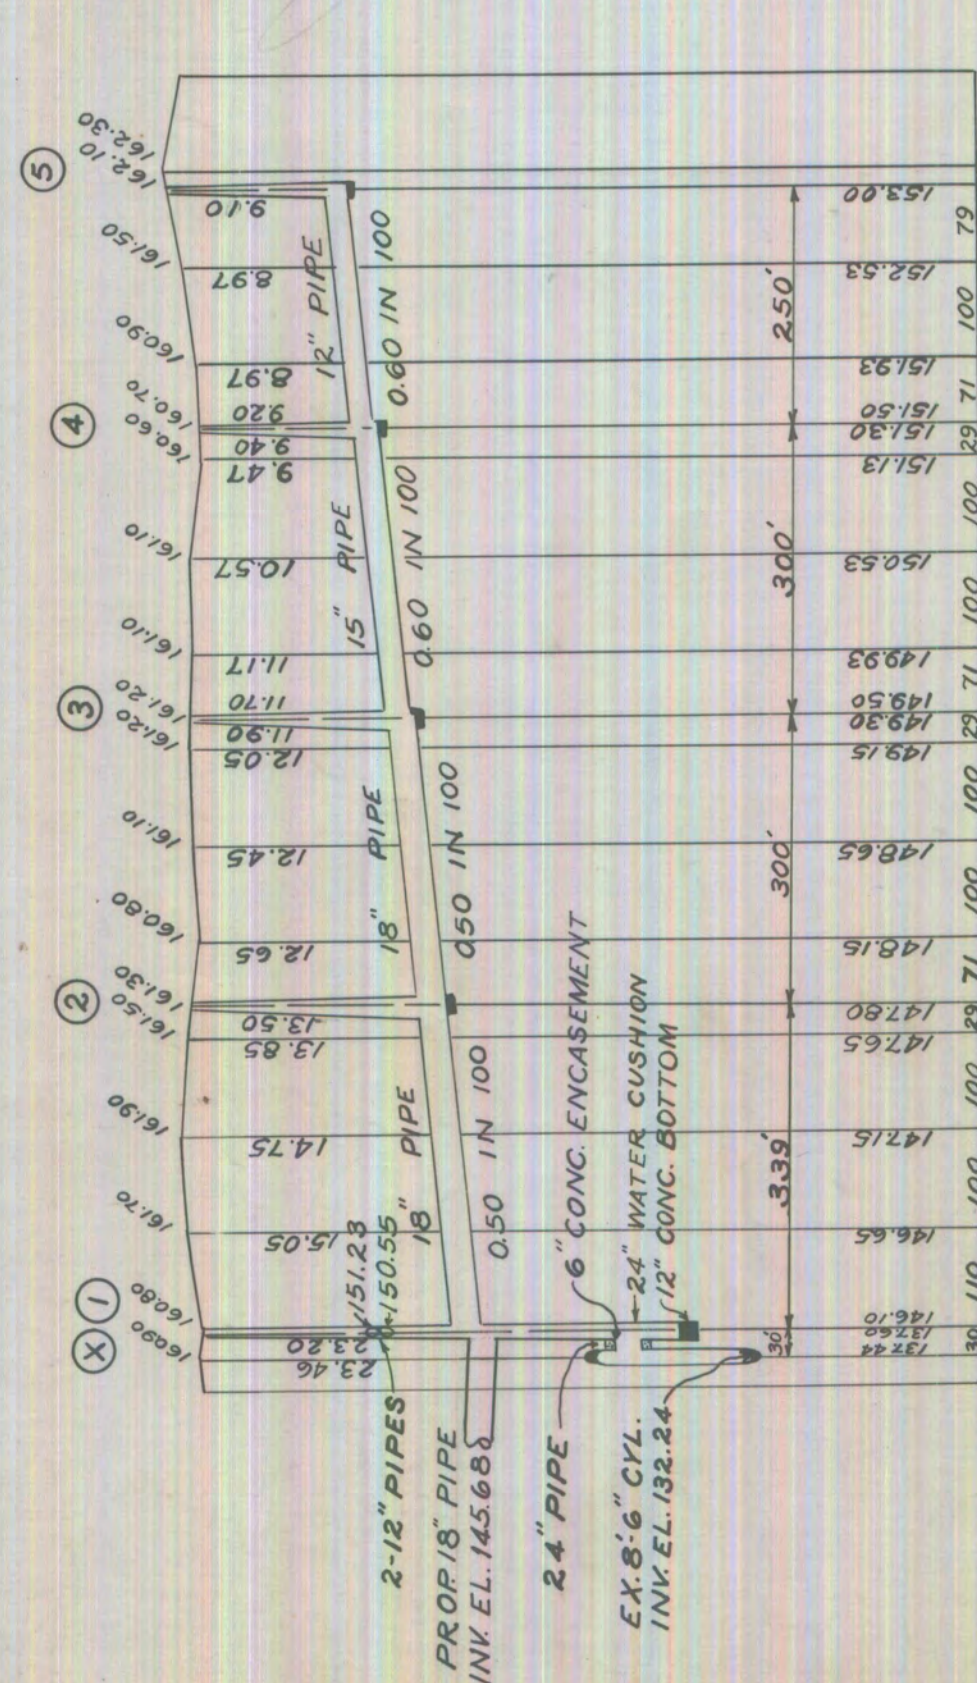 X
1
2
3
4
5
160.90
160.80
161.70
161.90
161.50
161.30
160.80
161.10
161.20
161.20
161.10
161.10
160.60
160.70
160.90
161.50
162.10
162.30
23.46
23.20
15.05
14.75
13.85
13.50
12.65
12.45
12.05
11.90
11.70
11.17
10.57
9.47
9.40
9.20
8.97
8.97
9.10
151.23
150.55
18" PIPE
18" PIPE
15" PIPE
12" PIPE
0.50 IN 100
0.50 IN 100
0.60 IN 100
0.60 IN 100
2-12" PIPES
PROP. 18" PIPE
INV. EL. 145.68
24" PIPE
6" CONC. ENCASEMENT
24" WATER CUSHION
12" CONC. BOTTOM
EX. 8'-6" CYL.
INV. EL. 132.24
30'
339'
300'
300'
250'
137.44
137.60
146.10
146.65
147.15
147.65
147.80
148.15
148.65
149.15
149.30
149.50
149.93
150.53
151.13
151.30
151.50
151.93
152.53
153.00
30
110
100
100
29
71
100
100
29
71
100
100
29
71
100
79